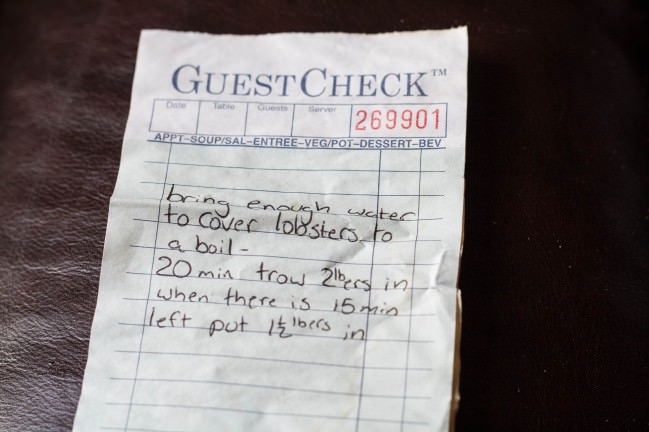 GUESTCHECK™
Date Table Guests Server 269901
APPT-SOUP/SAL-ENTREE-VEG/POT-DESSERT-BEV
bring enough water
to cover lobsters to
a boil -
20 min trow 2lbers in
when there is 15 min
left put 1½ lbers in